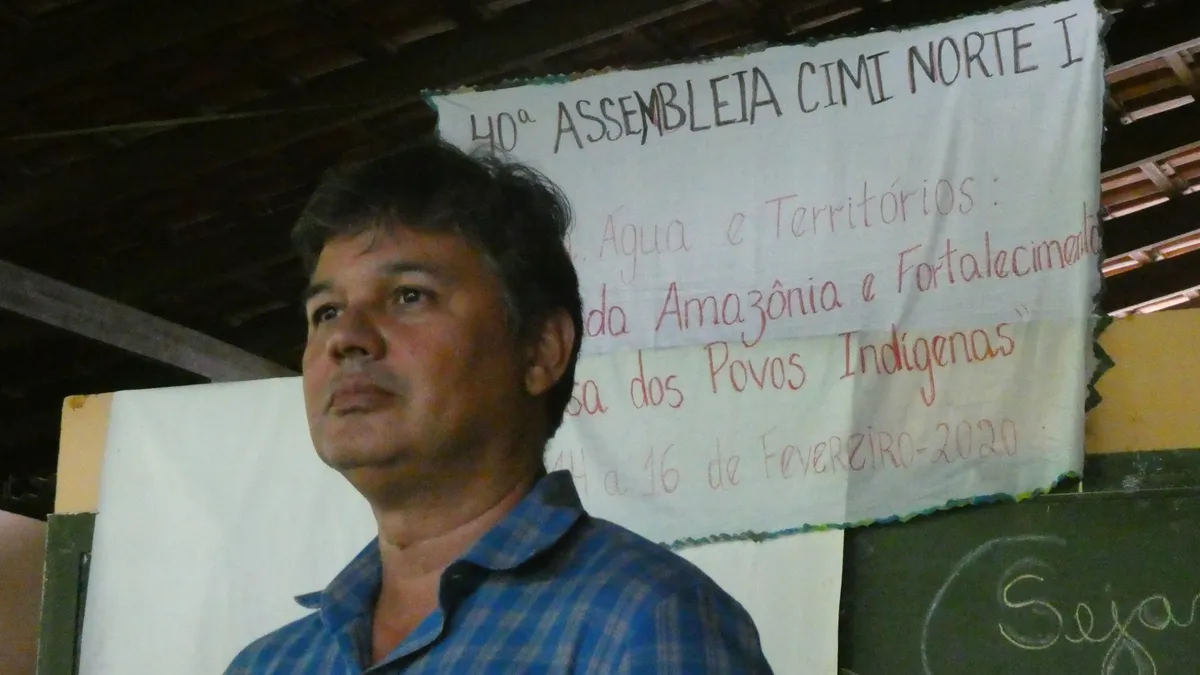 40ª ASSEMBLEIA CIMI NORTE I
Água e Territórios:
da Amazônia e Fortalecimento
sa dos Povos Indígenas"
14 a 16 de Fevereiro-2020
Seja